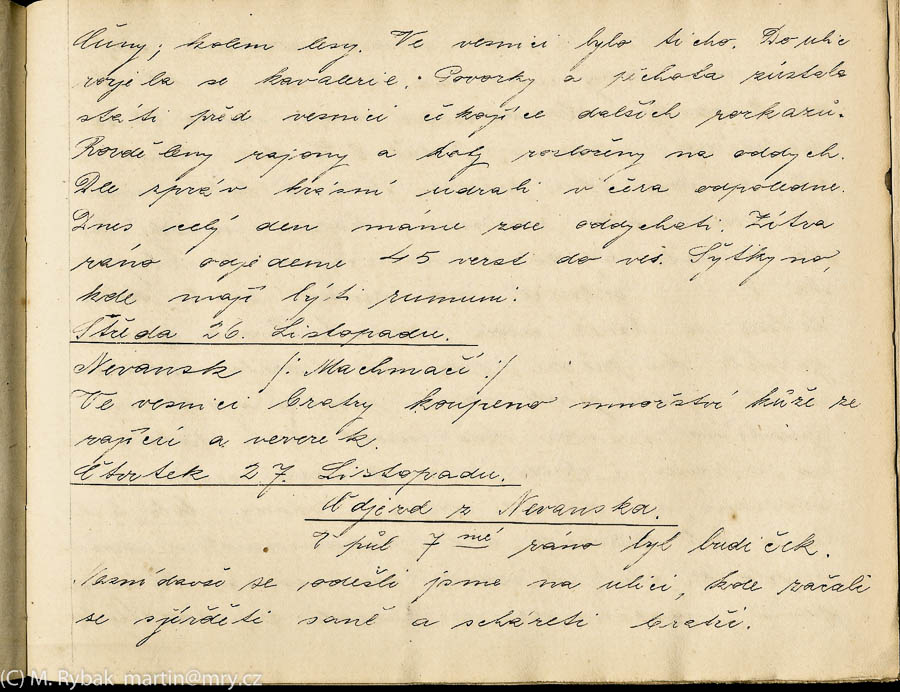 čluny; kolem lesy. Ve vesnici bylo ticho. Do ulic
vojela se kavalerie. Povozky a pěchota zůstala
státi před vesnicí čekajíce dalších rozkazů.
Rozděleny rajony a roty rozloženy na oddych.
Dle zpráv krásní udrali včera odpoledne.
Dnes celý den máme zde oddychati. Zítra
ráno odjedeme 45 verst do ves. Sytkyno,
kde mají býti rumuni.
Středa 26. Listopadu.
Nevansk /: Machmačí :/
Ve vesnici bratry koupeno množství kůže ze
zajíců a veverek.
Čtvrtek 27. Listopadu.
Odjezd z Nevanska.
O půl 7 mé ráno byl budíček.
Nasnídavší se odešli jsme na ulici, kde začali
se sjížděti saně a scházeti bratři.
(C) M. Rybak martin@mry.cz